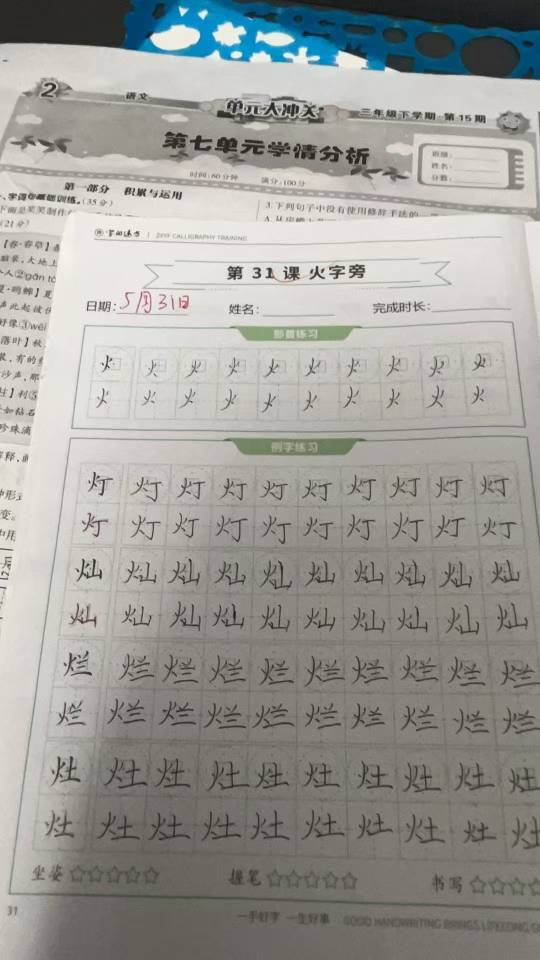 2
语文
单元大冲关
三年级下学期·第15期
第七单元学情分析
班级:
姓名:
分数:
时间:60分钟 满分:100分
第一部分 积累与运用
3.下列句子中没有使用修辞手法的
(21分)
2XYF CALLIGRAPHY TRAINING
第 31 课 火字旁
日期: 5月31日 姓名: 完成时长:
部首练习
火 火 火 火 火 火 火 火 火 火
火 火 火 火 火 火 火 火 火 火
例字练习
灯 灯 灯 灯 灯 灯 灯 灯 灯 灯
灯 灯 灯 灯 灯 灯 灯 灯 灯 灯
灿 灿 灿 灿 灿 灿 灿 灿 灿 灿
灿 灿 灿 灿 灿 灿 灿 灿 灿 灿
烂 烂 烂 烂 烂 烂 烂 烂 烂 烂
烂 烂 烂 烂 烂 烂 烂 烂 烂 烂
灶 灶 灶 灶 灶 灶 灶 灶 灶 灶
灶 灶 灶 灶 灶 灶 灶 灶 灶 灶
坐姿 握笔 书写
31
一手好字 一生好事 GOOD HANDWRITING BRINGS LIFELONG